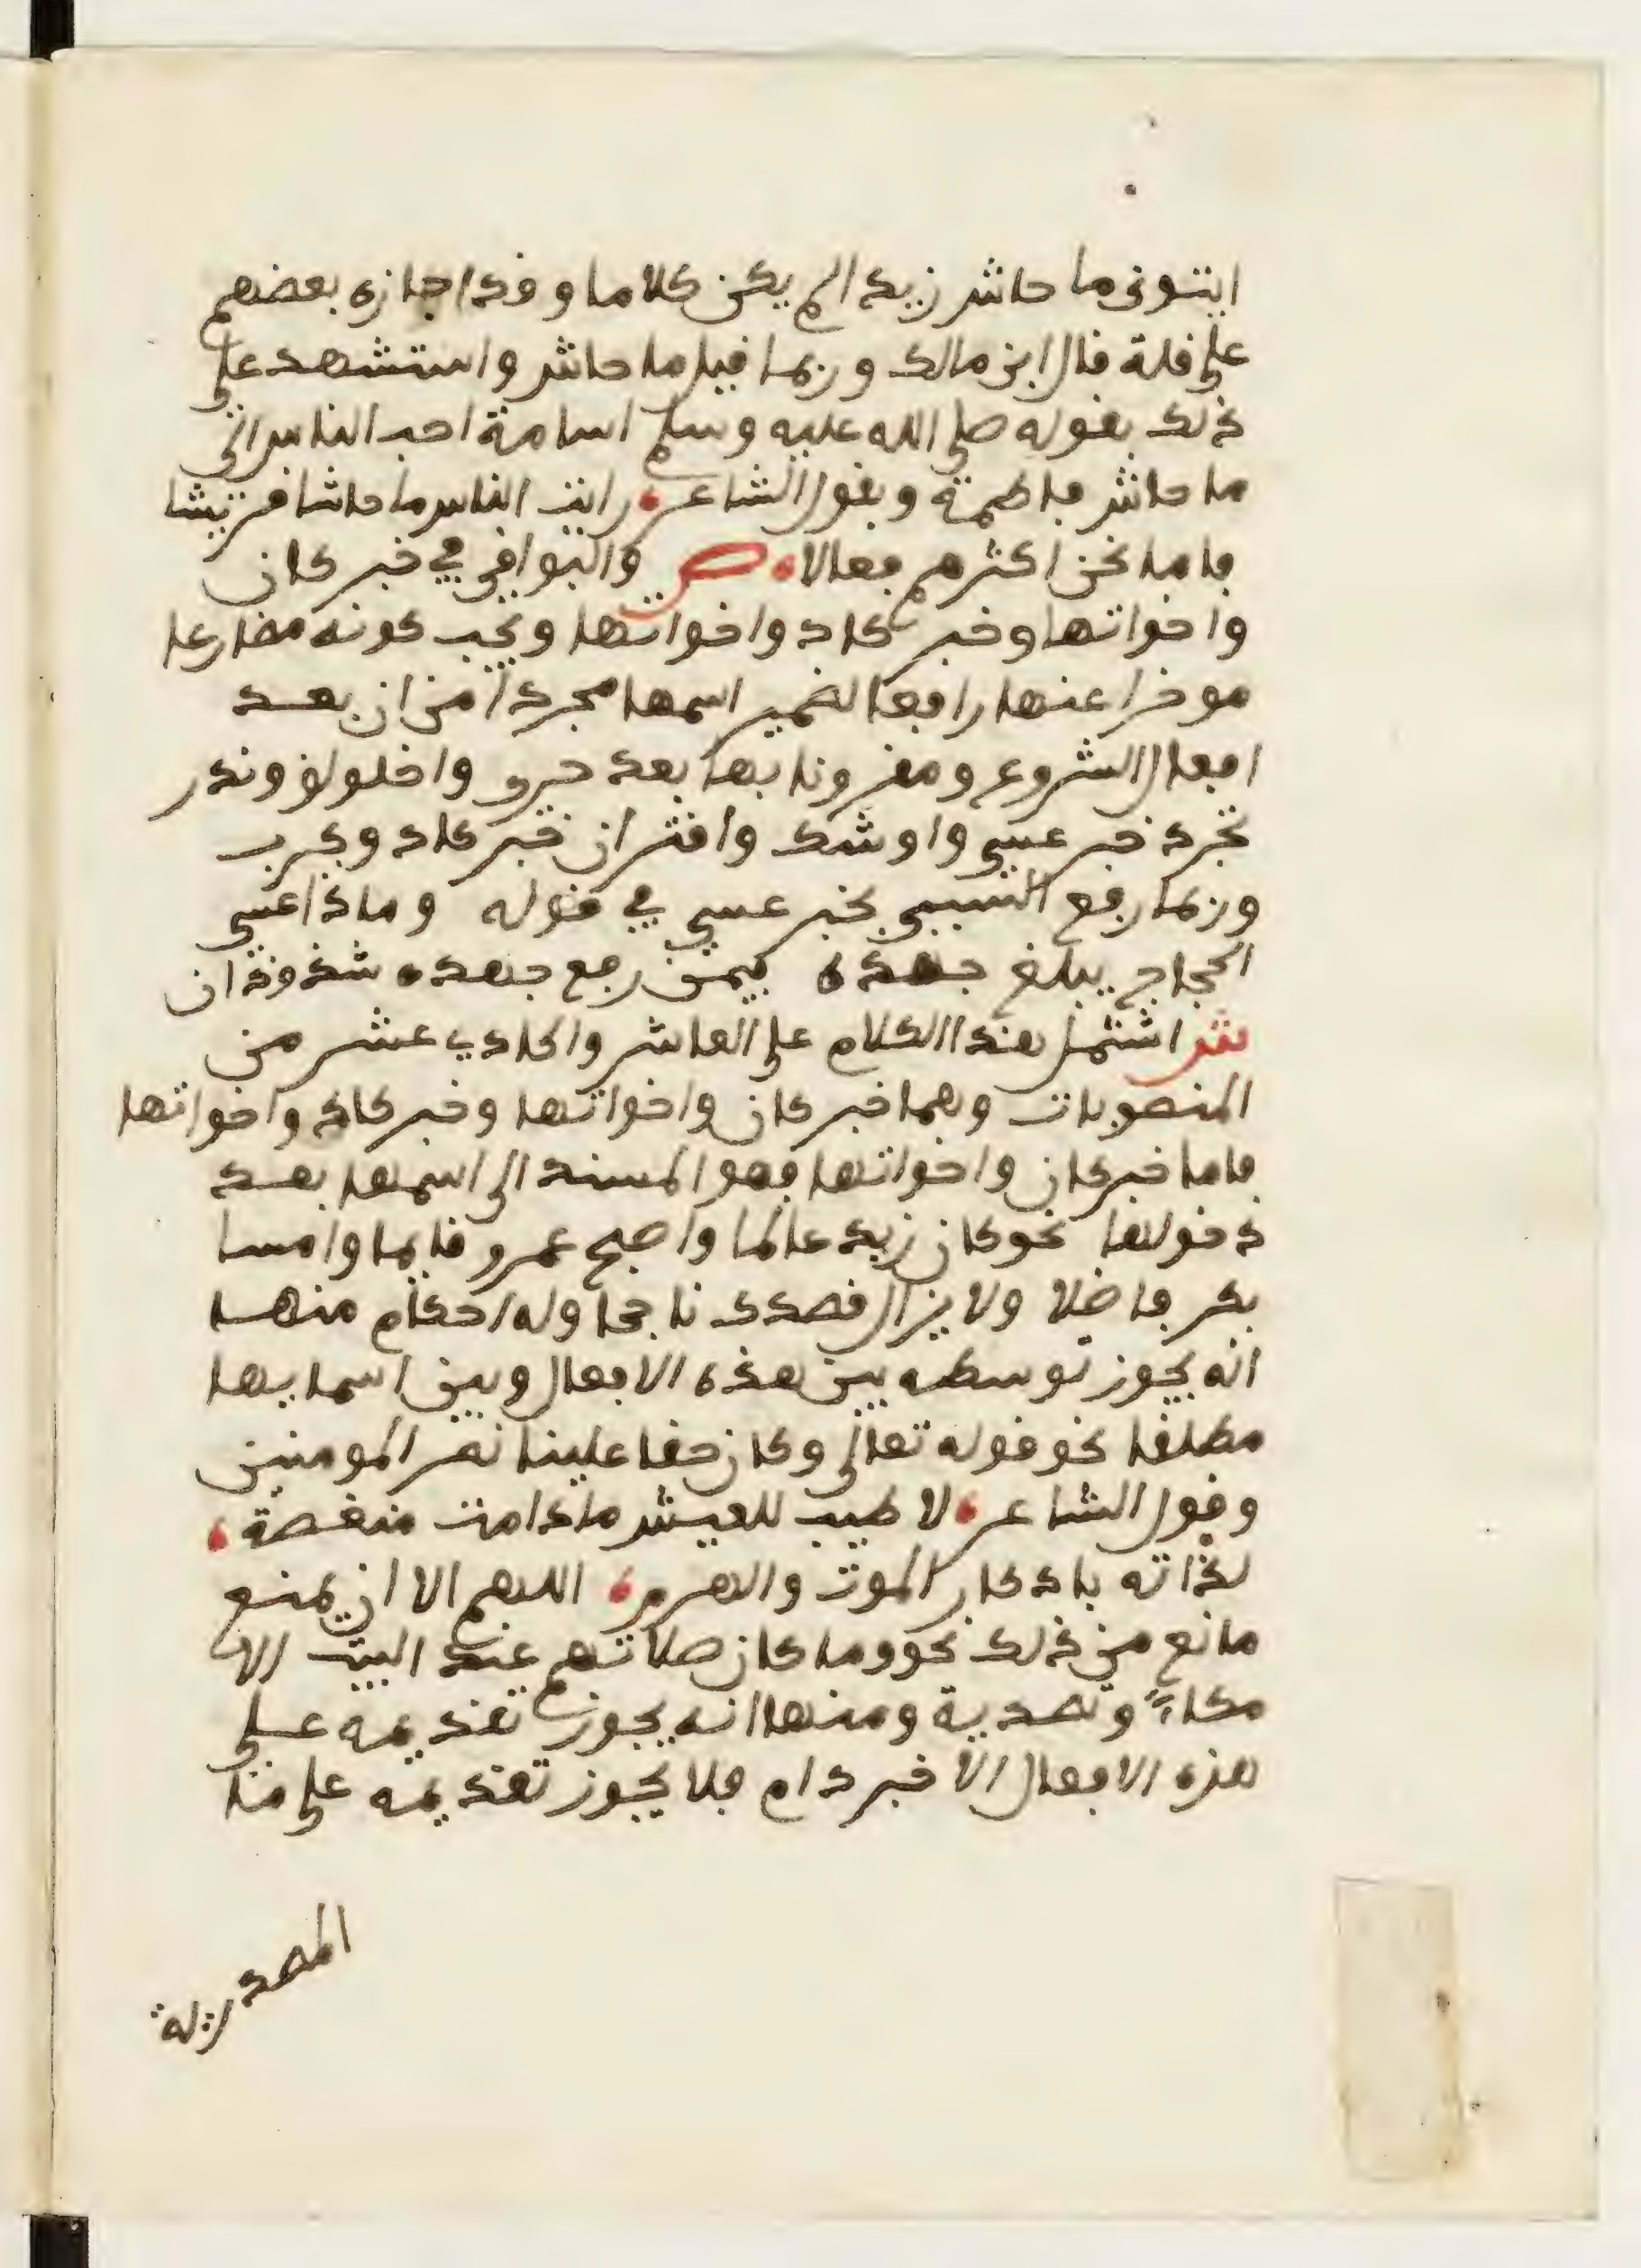 ايتونى ما حاشى زيدا لم يكن كلاما وقد اجازه بعضهم
على قلة قال ابن مالك وربما قيل ما حاشى واستشهد على
ذلك بقوله صلى الله عليه وسلم اسامة احب الناس الى
ما حاشى فاطمة وبقول الشاعر رايت الناس ما حاشا قريشا
فاما نحن اكثرهم فعالا ص والبواقى في خبر كان
واخواتها وخبر كاد واخواتها ويجب كونه مضارعا
موخرا عنها رافعا لضمير اسمها مجردا من ان بعد
افعال الشروع ومقرونا بها بعد حرى واخلولق وندر
تجرد خبر عسى واوشك واقتران خبر كاد وكرب
وربما رفع السببى بخبر عسى في قوله وماذا عسى
الحجاج يبلغ جهده فيمن رفع جهده شذوذان
ش اشتمل هذا الكلام على العاشر والحادي عشر من
المنصوبات وهما خبر كان واخواتها وخبر كاد واخواتها
فاما خبر كان واخواتها فهو المسند الى اسمها بعد
دخولها نحو كان زيد عالما واصبح عمرو قايما وامسا
بكر فاضلا ولا يزال قصدك ناجحا وله احكام منها
انه يجوز توسطه بين هذه الافعال وبين اسمايها
مطلقا نحو قوله تعالى وكان حقا علينا نصر المومنين
وقول الشاعر لا طيب للعيش ما دامت منغصة
لذاته بادكار الموت والهرم اللهم الا ان يمنع
مانع من ذلك نحو وما كان صلاتهم عند البيت الا
مكاء وتصدية ومنها انه يجوز تقديمه على
هذه الافعال الا خبر دام فلا يجوز تقديمه على ما
المصدرية